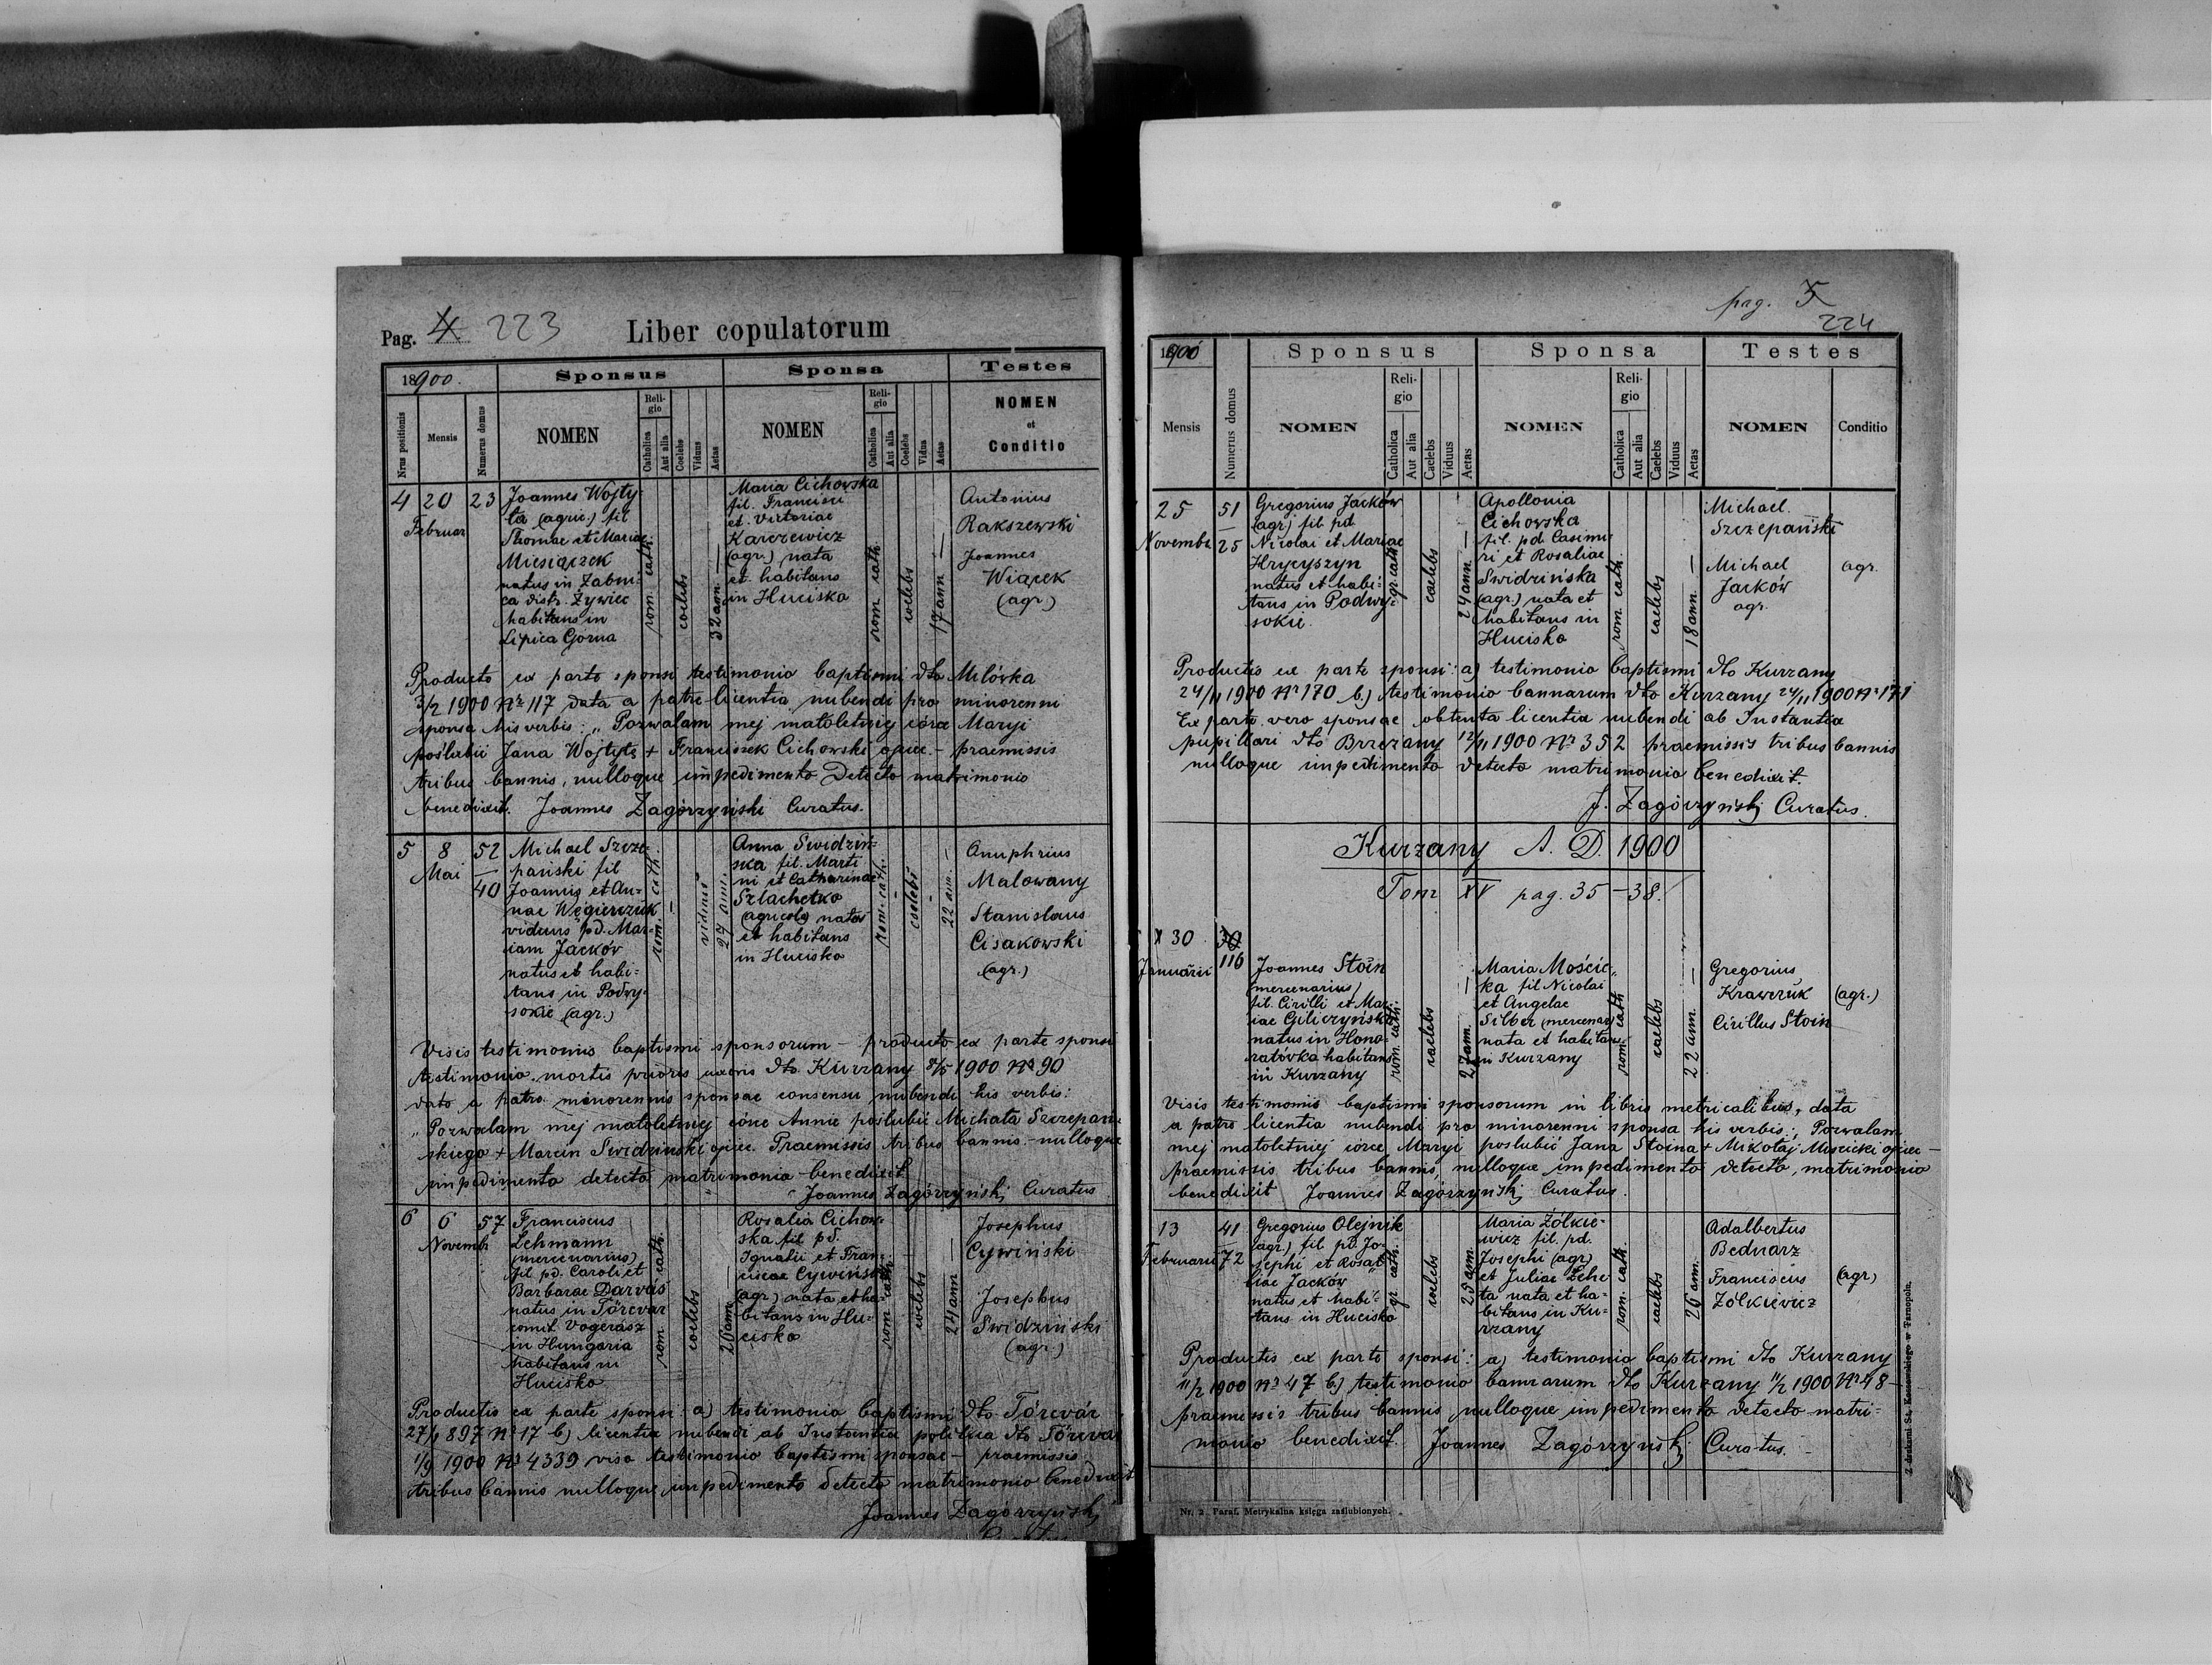 Pag. 4 223 Liber copulatorum
18900. Sponsus Sponsa Testes
Nrus positionis Mensis Numerus domus NOMEN Religio Catholica Aut alia Coelebs Viduus Aetas NOMEN Religio Catholica Aut alia Coelebs Vidua Aetas NOMEN et Conditio
4 20 Februar 23
Joannes Wojty-
ła (agric.) fil
Thomae et Mariae
Miesiączek
natus in Żabni-
ca distr. Żywiec
habitans in
Lipica Gorna
rom. cath.
coelebs
32 ann.
Maria Cichowska
fil. Francisci
et Victoriae
Karczewicz
(agr.) nata
et habitans
in Hucisko
rom cath
coelebs
17 ann
Antonius
Rakszewski
Joannes
Wiącek
(agr.)
Producto ex parte sponsi testimonio baptismi dto Milówka
3/2 1900 Nr 117 data a patre licentia nubendi pro minorenni
sponsa his verbis: „Pozwalam mej małoletniej córce Maryi
poślubić Jana Wojtyłę + Franciszek Cichowski ojciec. – praemissis
tribus bannis, nulloque impedimento detecto matrimonio
benedixit. Joannes Zagórzyński Curatus.
5 8 Mai 52 40
Michael Szcze-
pański fil
Joannis et An-
nae Węgierczuk
viduus pd. Mar-
iam Jacków
natus et habi-
tans in Podwy-
sokie (agr.)
rom. cath.
viduus
27 ann.
Anna Swidziń-
ska fil. Marti
ni et Catharinae
Szlachetko
(agricola) nata
et habitans
in Hucisko
rom. cath.
coelebs
22 ann.
Anuphrius
Malowany
Stanislaus
Cisakowski
(agr.)
Visis testimonis baptismi sponsorum – producto ex parte sponsi
testimonio mortis prioris uxoris dto Kurzany 8/5 1900 Nr 90
dato a patre minorennis sponsae consensu nubendi his verbis:
„Pozwalam mej małoletniej córce Annie poślubić Michała Szczepań-
skiego + Marcin Swidzinski ojciec. Praemissis tribus bannis – nulloque
impedimento detecto matrimonio benedixit
Joannes Zagórzyński Curatus
6 6 Novembr 57
Franciscus
Lehmann
(mercenarius)
fil pd. Caroli et
Barbarae Darvás
natus in Törcvar
comit. Vogerasz
in Hungaria
habitans in
Hucisko
rom cath.
coelebs
26 ann
Rosalia Cichow-
ska fil pd.
Ignatii et Fran-
ciscae Cywińska
(agr.) nata et ha-
bitans in Hu-
cisko
rom cath
coelebs
24 ann
Josephus
Cywiński
Josephus
Swidziński
(agr.)
Productis ex parte sponsi: a) testimonio baptismi dto Törcvár
27/1 897 Nr 17 b) licentia nubendi ab Instantia politica dto Törcvar
1/9 1900 Nr 4339 viso testimonio baptismi sponsae – praemissis
tribus bannis nulloque impedimento detecto matrimonio benedixit
Joannes Zagórzyński
pag. 5
224
1900 Sponsus Sponsa Testes
Mensis Numerus domus NOMEN Religio Catholica Aut alia Caelebs Viduus Aetas NOMEN Religio Catholica Aut alia Caelebs Viduus Aetas NOMEN Conditio
25 Novembr 51 25
Gregorius Jacków
(agr.) fil. pd.
Nicolai et Mariae
Hrycyszyn
natus et habi-
tans in Podwy-
sokie.
gr. cath
caelebs
24 ann
Apollonia
Cichowska
fil. pd. Casimi-
ri et Rosaliae
Swidzińska
(agr.) nata et
habitans in
Hucisko
rom cath.
caelebs
18 ann.
Michael
Szczepański
Michael agr.
Jacków
agr.
Productis ex parte sponsi: a) testimonio baptismi dto Kurzany
24/11 1900 Nr 170 b) testimonio bannarum dto Kurzany 24/11 1900 Nr 171
Ex parte vero sponsae obtenta licentia nubendi ab Instantia
pupillari dto Brzezany 12/11 1900 Nr 352 praemissis tribus bannis
nulloque impedimento detecto matrimonio benedixit.
J. Zagórzyński Curatus.
Kurzany A. D. 1900
Tom XV pag. 35–38.
30 Januarii 30 116
Joannes Stoin
(mercenarius)
fil. Cirilli et Mar-
iae Giliczyńska
natus in Hono-
ratówka habitans
in Kurzany
rom. cath.
caelebs
27 ann.
Maria Mościc-
ka fil Nicolai
et Angelae
Silber (mercenar)
nata et habitans
in Kurzany
rom. cath
caelebs
22 ann.
Gregorius
Krawczuk (agr.)
Cirillus Stoin
Visis testimonis baptismi sponsorum in libris metricalibus, data
a patre licentia nubendi pro minorenni sponsa his verbis: „Pozwalam
mej małoletniej córce Maryi poslubić Jana Stoina + Mikołaj Mościcki ojciec –
praemissis tribus bannis, nulloque impedimento detecto, matrimonio
benedixit Joannes Zagórzyński Curatus.
13 Februarii 41 72
Gregorius Olejnik
(agr.) fil pd. Jo-
sephi et Rosa-
liae Jacków
natus et habi-
tans in Hucisko
gr. cath.
caelebs
25 ann.
Maria Żółkie-
wicz fil. pd.
Josephi (agr)
et Juliae Lehe
ta nata et ha-
bitans in Ku-
rzany
rom. cath.
caelebs
26 ann.
Adalbertus
Bednarz
Franciscus (agr)
Żółkiewicz
Productis ex parte sponsi: a) testimonio baptismi dto Kurzany
11/2 1900 Nr 47 b) testimonio bannarum dto Kurzany 11/2 1900 Nr 48 –
praemissis tribus bannis nulloque impedimento detecto matri-
monio benedixit. Joannes Zagórzyński Curatus. –
Nr. 2. Paraf. Metrykalna księga zaślubionych.
Z drukarni St. Kossowskiego w Tarnopolu.